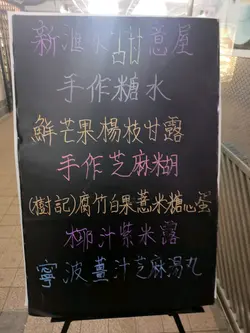 手作糖水
鮮芒果楊枝甘露
手作芝麻糊
(樹記)腐竹白果薏米糖心蛋
椰汁紫米露
寧波薑汁芝麻湯丸